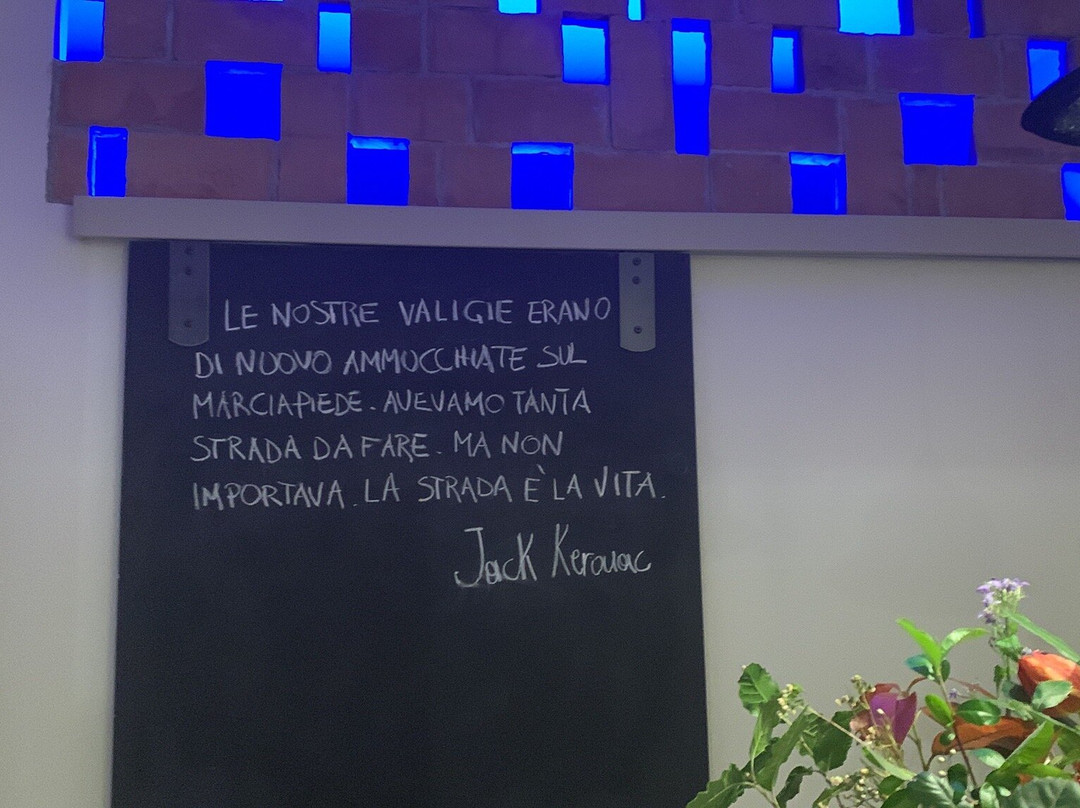 LE NOSTRE VALIGIE ERANO
DI NUOVO AMMUCCHIATE SUL
MARCIAPIEDE. AVEVAMO TANTA
STRADA DA FARE. MA NON
IMPORTAVA. LA STRADA È LA VITA.
Jack Kerouac